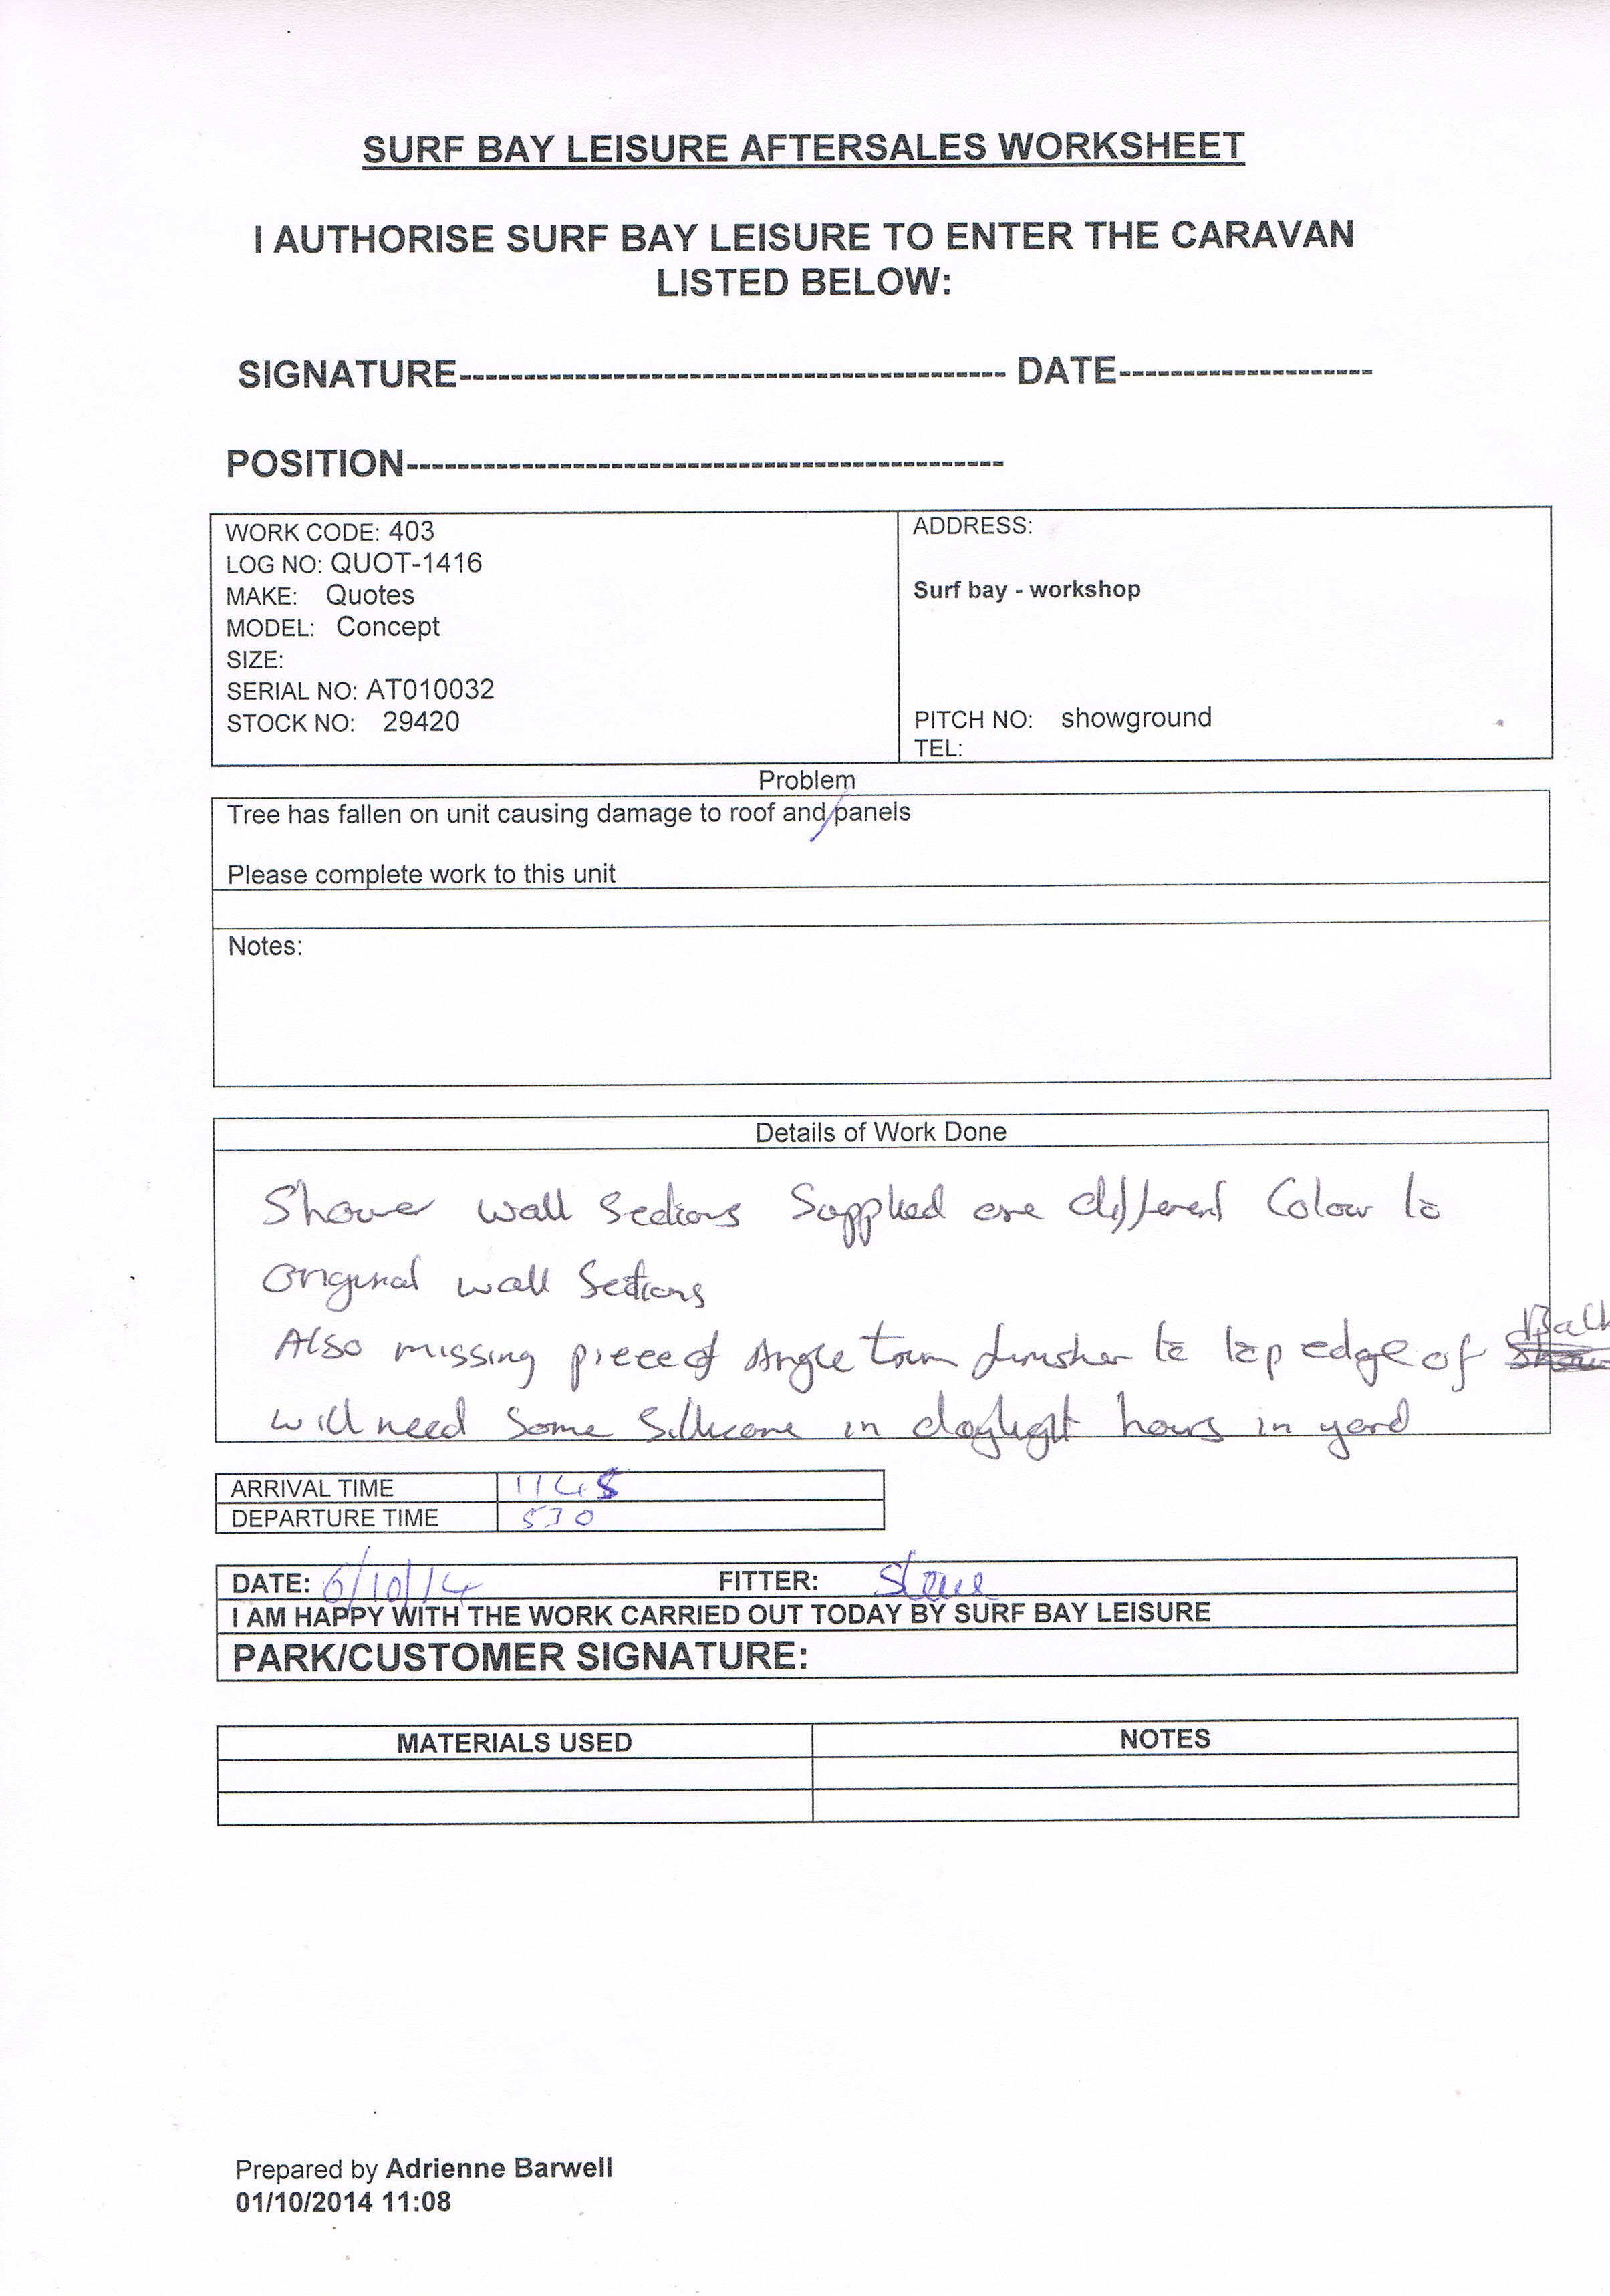 SURF BAY LEISURE AFTERSALES WORKSHEET
I AUTHORISE SURF BAY LEISURE TO ENTER THE CARAVAN
LISTED BELOW:
SIGNATURE------------------------------------------- DATE--------------------
POSITION-----------------------------------------------
WORK CODE: 403
LOG NO: QUOT-1416
MAKE: Quotes
MODEL: Concept
SIZE:
SERIAL NO: AT010032
STOCK NO: 29420
ADDRESS:
Surf bay - workshop
PITCH NO: showground
TEL:
Problem
Tree has fallen on unit causing damage to roof and/panels
Please complete work to this unit
Notes:
Details of Work Done
Shower wall Sections Supplied are different Colour to
Original wall Sections
Also missing piece of Angle trim finisher to top edge of
will need Some Sillicone in daylight hours in yard
ARRIVAL TIME 1145
DEPARTURE TIME 530
DATE: 6/10/14 FITTER: Steve
I AM HAPPY WITH THE WORK CARRIED OUT TODAY BY SURF BAY LEISURE
PARK/CUSTOMER SIGNATURE:
MATERIALS USED NOTES
Prepared by Adrienne Barwell
01/10/2014 11:08